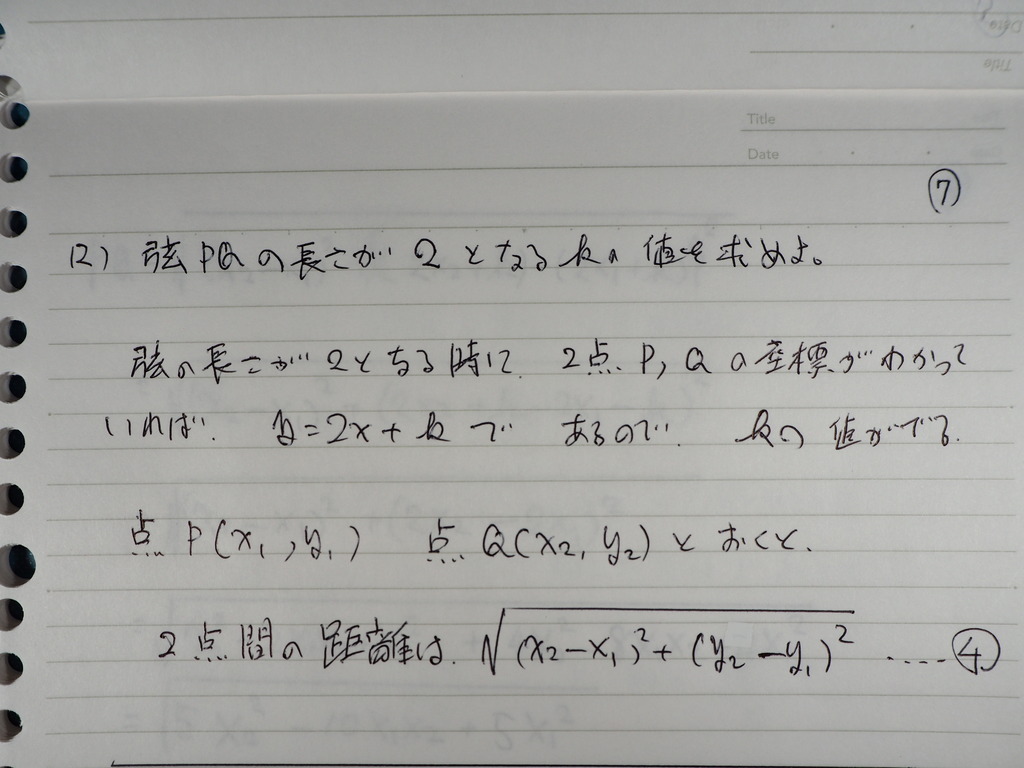 Title
Date
⑦
(2) 弦PQの長さが2となるkの値を求めよ。
弦の長さが2となる時に、2点P, Qの座標がわかって
いれば、y=2x+kであるので、kの値がでる。
点P(x₁, y₁) 点Q(x₂, y₂)とおくと、
2点間の距離は、√(x₂-x₁)²+(y₂-y₁)² ‥‥④